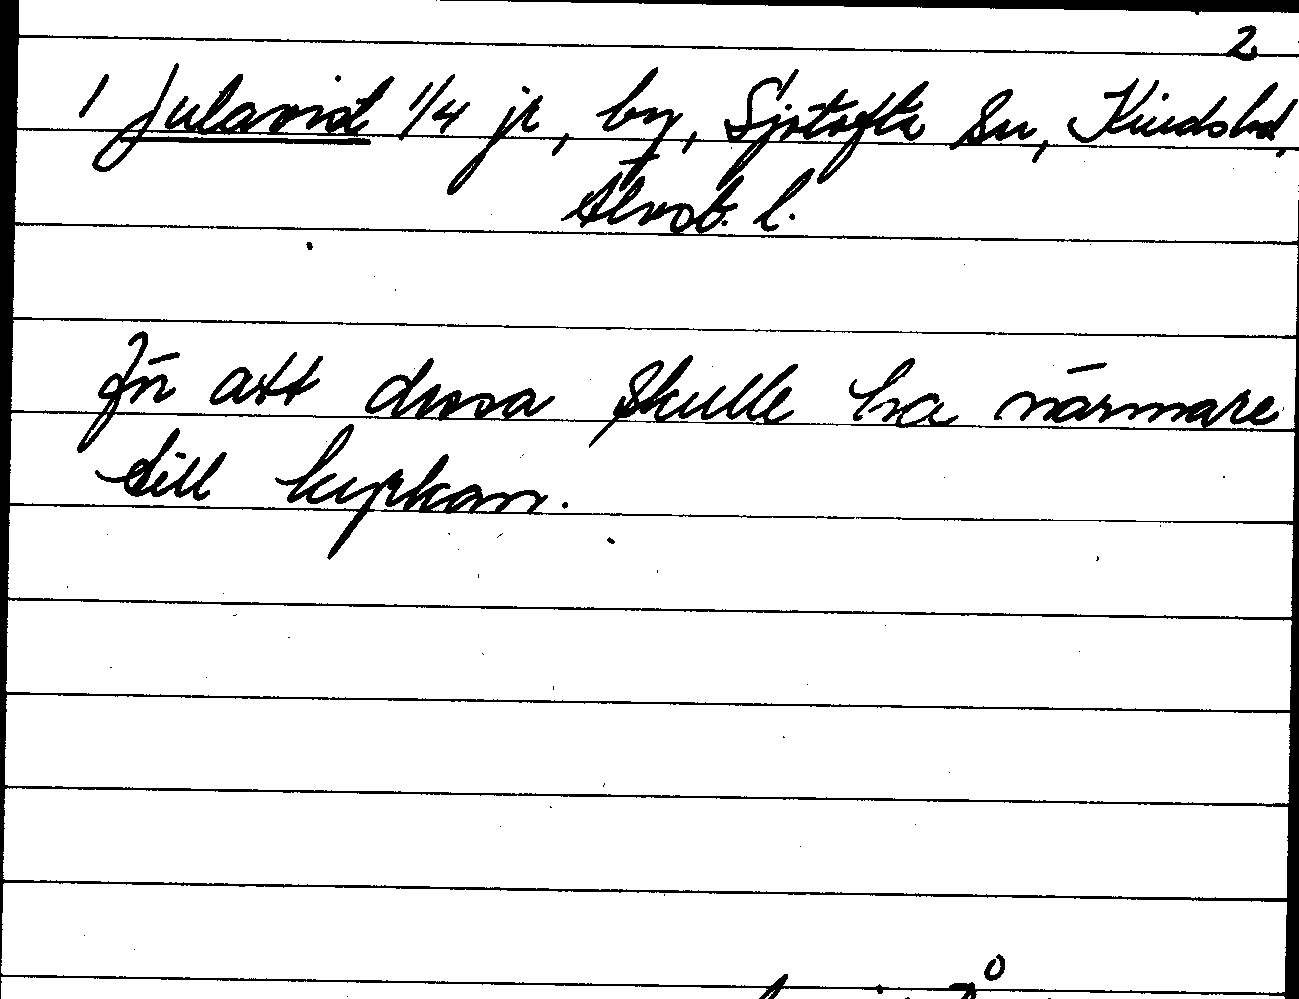 2
1 Julared 1/4 jr, by, Sjötofta Sn, Kinds hd,
Älvsb. l.
För att dessa skulle ha närmare
till kyrkan.